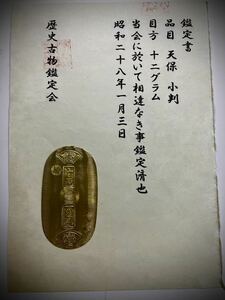 鑑定書
品目 天保 小判
目方 十二グラム
当会に於いて相違なき事鑑定済也
昭和二十八年一月三日
歴史古物鑑定会